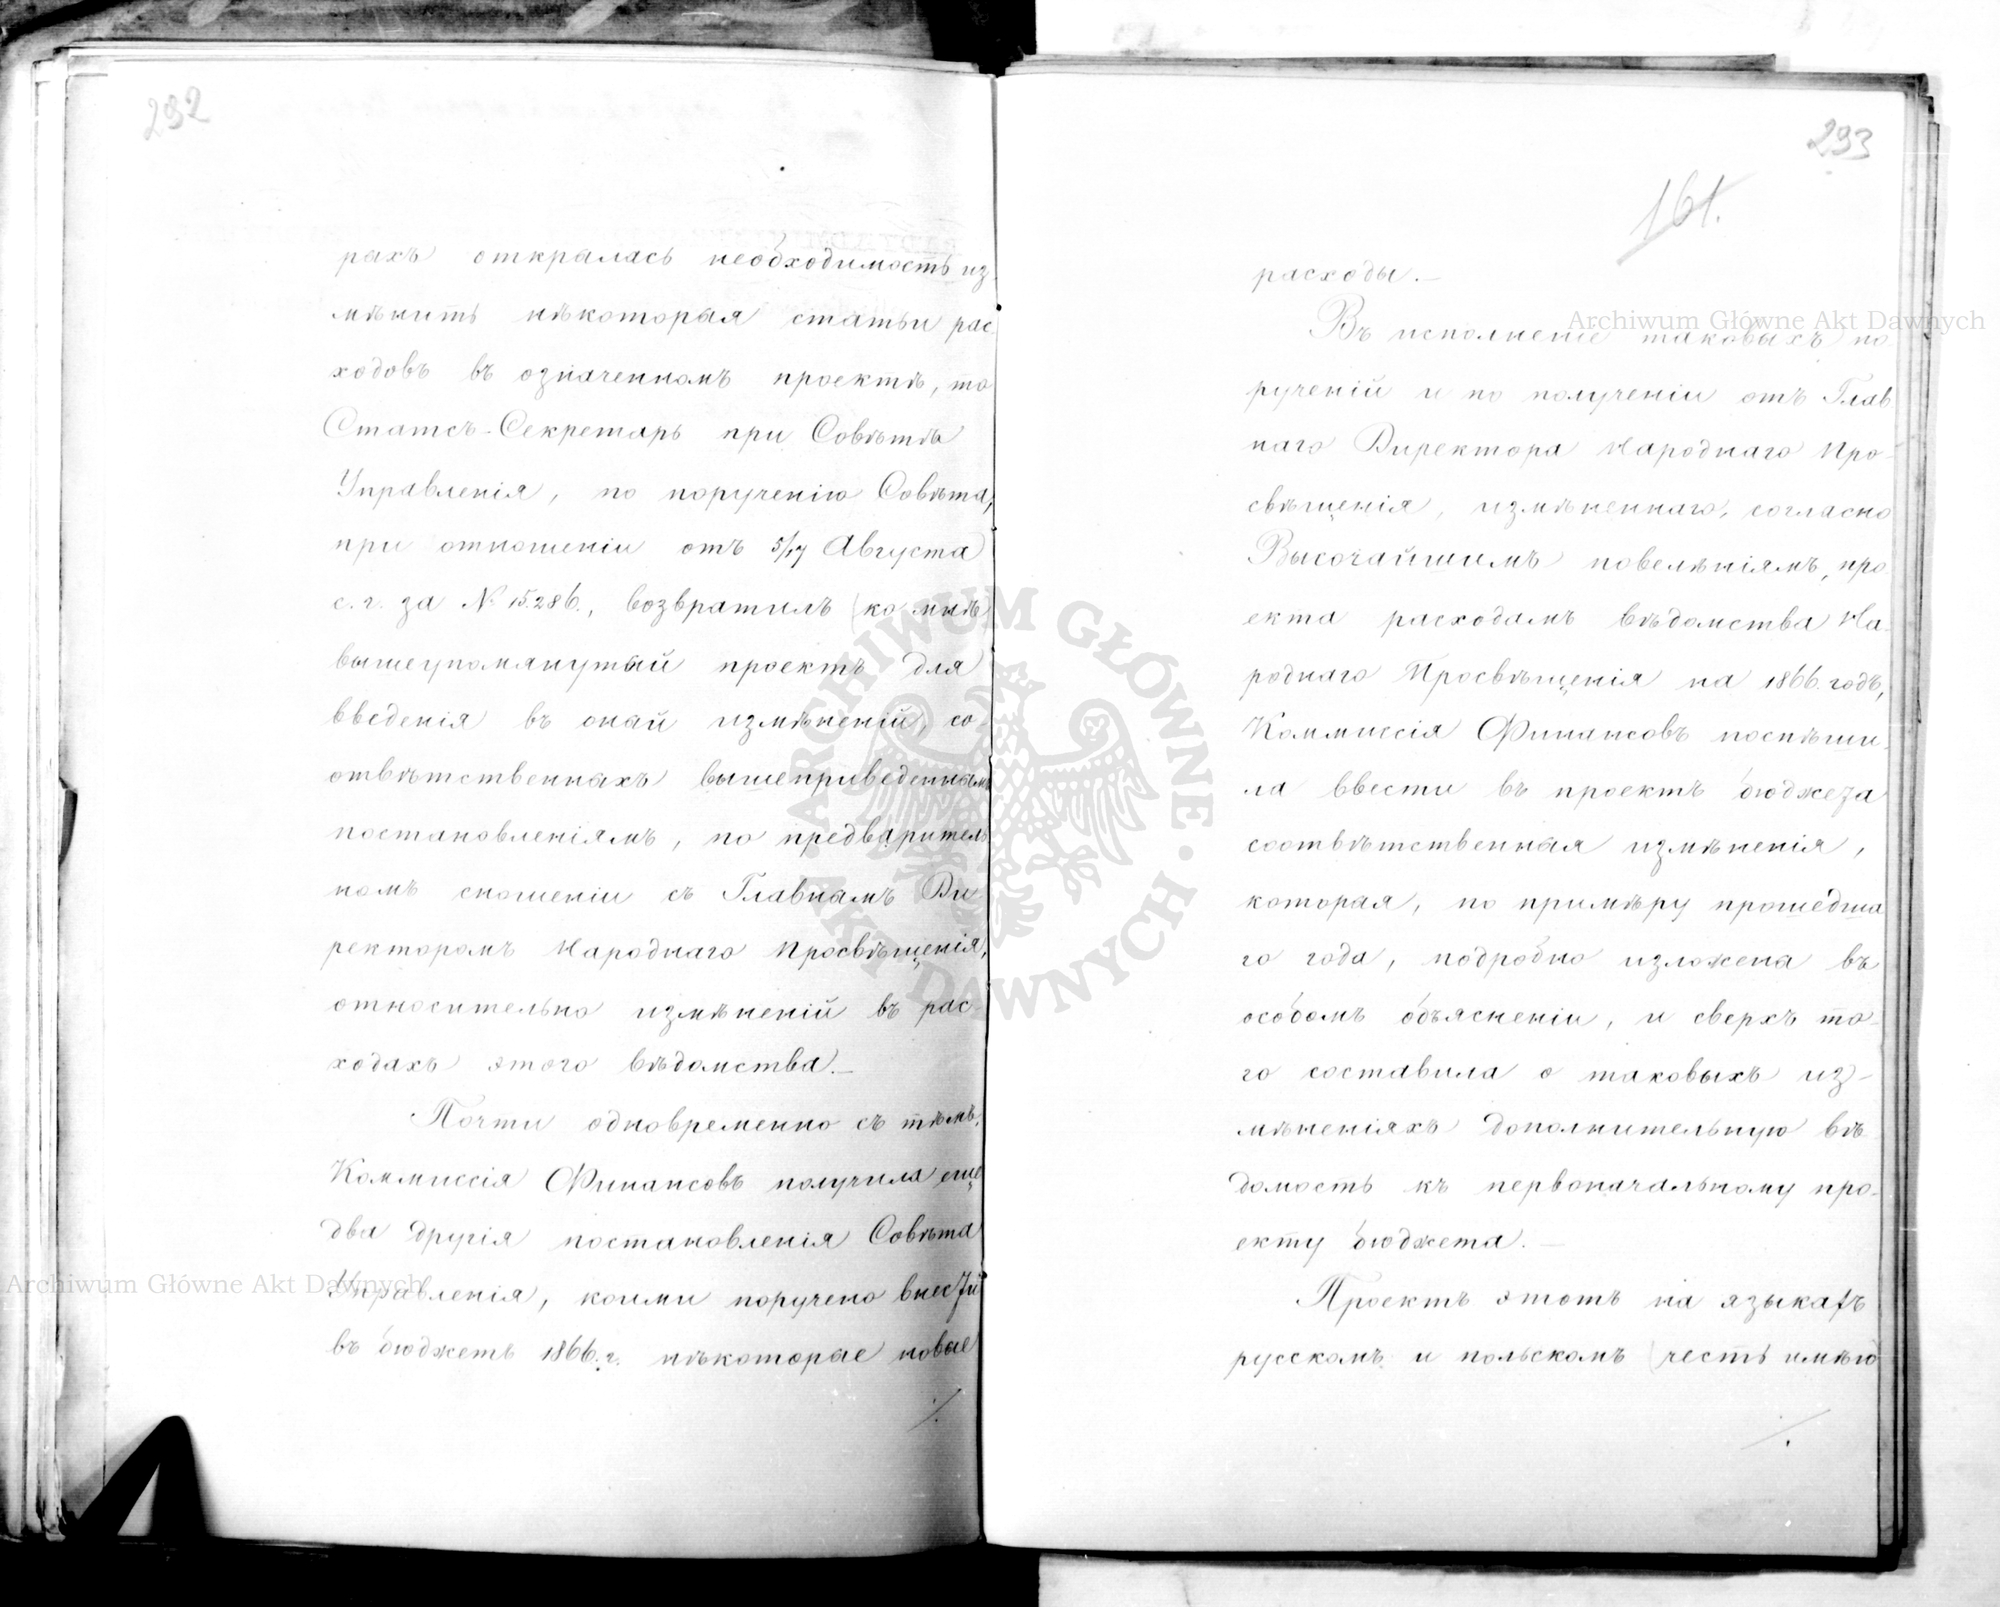 292
рахъ открылась необходимость из
мѣнить нѣкоторыя статьи рас
ходовъ въ означенномъ проектѣ, то
Статсъ-Секретарь при Совѣтѣ
Управленія, по порученію Совѣта,
при отношеніи отъ 5/17 Августа
с. г. за № 15.286., возвратилъ ко мнѣ
вышеупомянутый проектъ для
введенія въ оный измѣненій, со-
отвѣтственныхъ вышеприведеннымъ
постановленіямъ, по предваритель
номъ сношеніи съ Главнымъ Ди
ректоромъ Народнаго Просвѣщенія,
относительно измѣненій въ рас-
ходахъ этого вѣдомства.—
Почти одновременно съ тѣмъ,
Коммиссія Финансовъ получила еще
два другія постановленія Совѣта
Управленія, коими поручено внести
въ бюджетъ 1866. г. нѣкоторые новые
./.
293
161.
расходы.—
Въ исполненіе таковыхъ по
рученій и по полученіи отъ Глав
наго Директора Народнаго Про-
свѣщенія, измѣненнаго, согласно
Высочайшимъ повелѣніямъ, про
екта расходамъ вѣдомства На-
роднаго Просвѣщенія на 1866. годъ,
Коммиссія Финансовъ поспѣши-
ла ввести въ проектъ бюджета
соотвѣтственныя измѣненія,
которыя, по примѣру прошедша
го года, подробно изложены въ
особомъ объясненіи, и сверхъ то-
го составила о таковыхъ из-
мѣненіяхъ дополнительную вѣ
домость къ первоначальному про-
екту бюджета.—
Проектъ этотъ на языкахъ
русскомъ и польскомъ честь имѣю
./.
Archiwum Główne Akt Dawnych
Archiwum Główne Akt Dawnych
ARCHIWUM GŁÓWNE · AKT DAWNYCH ·